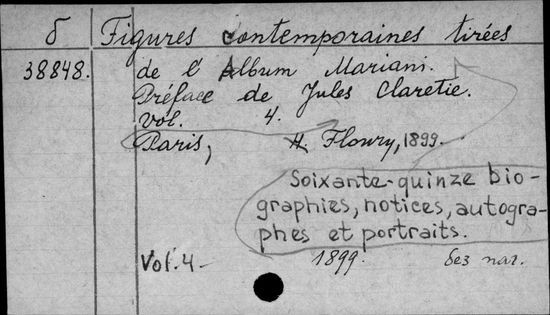 б Figures contemporaines tirées
38848. de l'Album Mariani.
Préface de Jules Claretie.
Vol. 4.
Paris, H. Floury, 1899.
Soixante-quinze bio-
graphies, notices, autogra-
phes et portraits.
Vol. 4 - 1899. без паг.